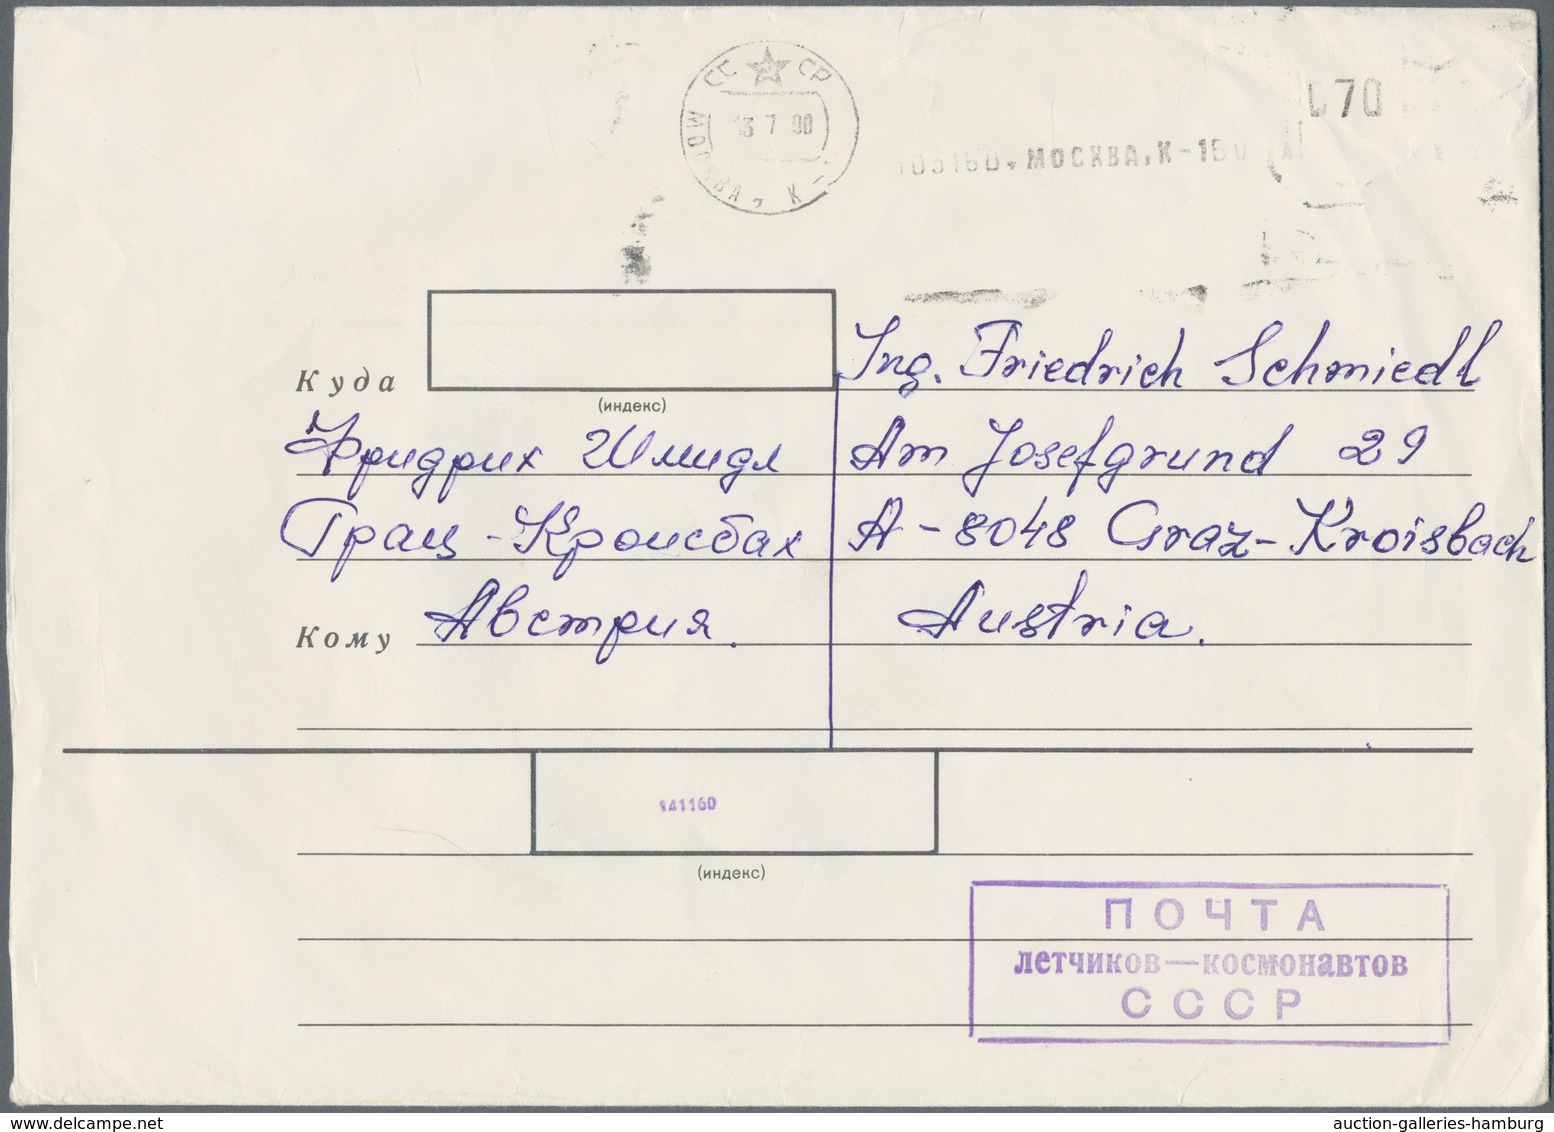 СС СР
3 7 90
МОСКВА, К-
070
103160, МОСКВА, К-160
Ing. Friedrich Schmiedl
Куда
(индекс)
Фридрих Шмидл
Am Josefgrund 29
Грац-Кроисбах
A-8048 Graz-Kroisbach
Кому
Австрия.
Austria.
141160
(индекс)
ПОЧТА
летчиков—космонавтов
СССР
www.delcampe.net
auction-galleries-hamburg